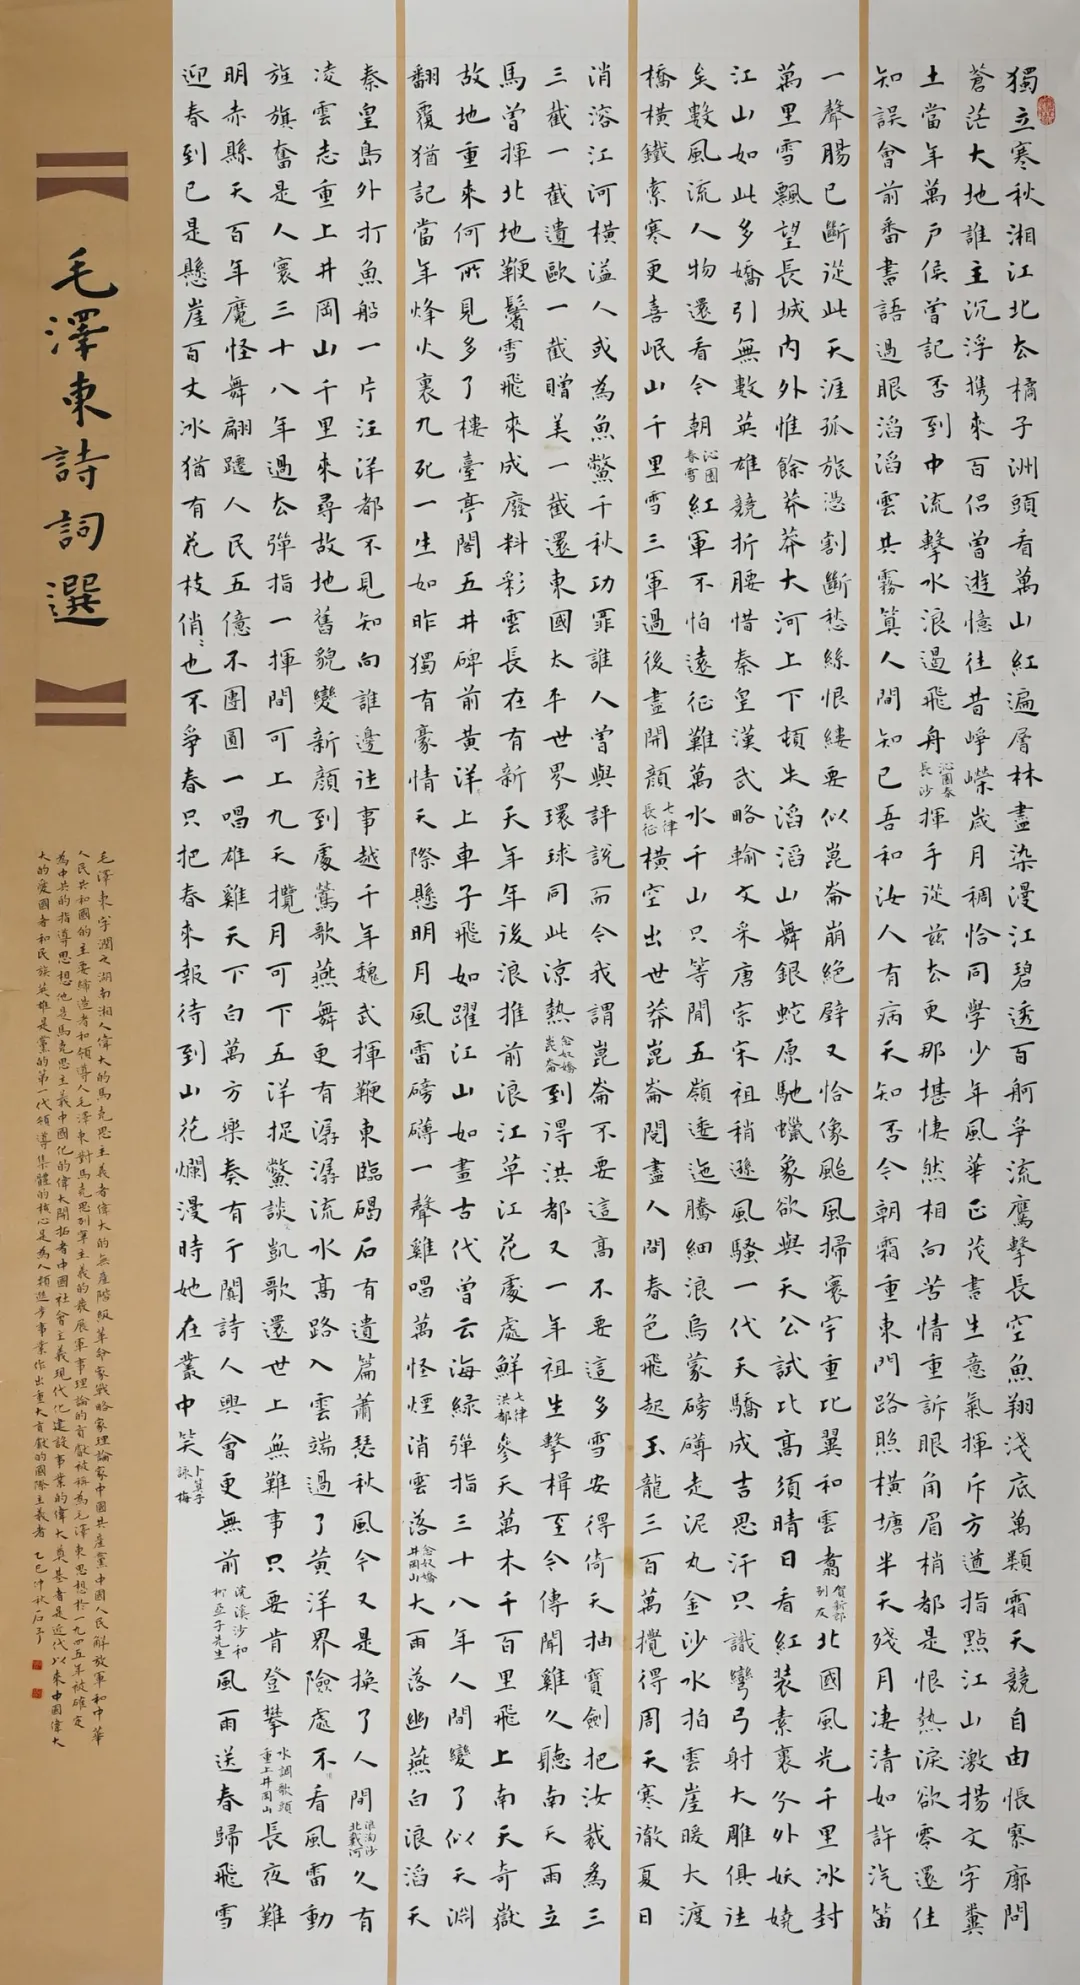 獨立寒秋湘江北去橘子洲頭看萬山紅遍層林盡染漫江碧透百舸爭流鷹擊長空魚翔淺底萬類霜天競自由悵寥廓問
蒼茫大地誰主沉浮攜來百侶曾遊憶往昔崢嶸歲月稠恰同學少年風華正茂書生意氣揮斥方遒指點江山激揚文字糞
土當年萬戶侯曾記否到中流擊水浪遏飛舟沁園春長沙揮手從茲去更那堪悽然相向苦情重訴眼角眉梢都是恨熱淚欲零還住
知誤會前番書語過眼滔滔雲共霧算人間知己吾和汝人有病天知否今朝霜重東門路照橫塘半天殘月凄清如許汽笛
一聲腸已斷從此天涯孤旅憑割斷愁絲恨縷要似崑崙崩絕壁又恰像颱風掃寰宇重比翼和雲翥賀新郎別友北國風光千里冰封
萬里雪飄望長城內外惟餘莽莽大河上下頓失滔滔山舞銀蛇原馳蠟象欲與天公試比高須晴日看紅裝素裹分外妖嬈
江山如此多嬌引無數英雄競折腰惜秦皇漢武略輸文采唐宗宋祖稍遜風騷一代天驕成吉思汗只識彎弓射大雕俱往
矣數風流人物還看今朝沁園春雪紅軍不怕遠征難萬水千山只等閒五嶺逶迤騰細浪烏蒙磅礴走泥丸金沙水拍雲崖暖大渡
橋橫鐵索寒更喜岷山千里雪三軍過後盡開顏七律長征橫空出世莽崑崙閱盡人間春色飛起玉龍三百萬攪得周天寒徹夏日
消溶江河橫溢人或為魚鱉千秋功罪誰人曾與評說而今我謂崑崙不要這高不要這多雪安得倚天抽寶劍把汝裁為三
三截一截遺歐一截贈美一截還東國太平世界環球同此涼熱念奴嬌崑崙到得洪都又一年祖生擊楫至今傳聞雞久聽南天雨立
馬曾揮北地鞭鬢雪飛來成廢料彩雲長在有新天年年後浪推前浪江草江花處處鮮七律洪都參天萬木千百里飛上南天奇嶽
故地重來何所見多了樓臺亭閣五井碑前黃洋上車子飛如躍江山如畫古代曾云海綠彈指三十八年人間變了似天淵
翻覆猶記當年烽火裏九死一生如昨獨有豪情天際懸明月風雷磅礴一聲雞唱萬怪煙消雲落念奴嬌井岡山大雨落幽燕白浪滔天
秦皇島外打魚船一片汪洋都不見知向誰邊往事越千年魏武揮鞭東臨碣石有遺篇蕭瑟秋風今又是換了人間浪淘沙北戴河久有
凌雲志重上井岡山千里來尋故地舊貌變新顏到處鶯歌燕舞更有潺潺流水高路入雲端過了黃洋界險處不看風雷動
旌旗奮是人寰三十八年過去彈指一揮間可上九天攬月可下五洋捉鱉談凱歌還世上無難事只要肯登攀水調歌頭重上井岡山長夜難
明赤縣天百年魔怪舞翩躚人民五億不團圓一唱雄雞天下白萬方樂奏有于闐詩人興會更無前浣溪沙和柳亞子先生風雨送春歸飛雪
迎春到已是懸崖百丈冰猶有花枝俏〻也不爭春只把春來報待到山花爛漫時她在叢中笑卜算子詠梅
毛澤東詩詞選
毛澤東字潤之湖南湘人偉大的馬克思主義者偉大的無產階級革命家戰略家理論家中國共產黨中國人民解放軍和中華
人民共和國的主要締造者和領導人毛澤東對馬克思列寧主義的發展軍事理論的貢獻被稱為毛澤東思想於一九四五年被確定
為中共的指導思想他是馬克思主義中國化的偉大開拓者中國社會主義現代化建設事業的偉大奠基者是近代以來中國偉大
大的愛國者和民族英雄是黨的第一代領導集體的核心是為人類進步事業作出重大貢獻的國際主義者乙巳仲秋石子